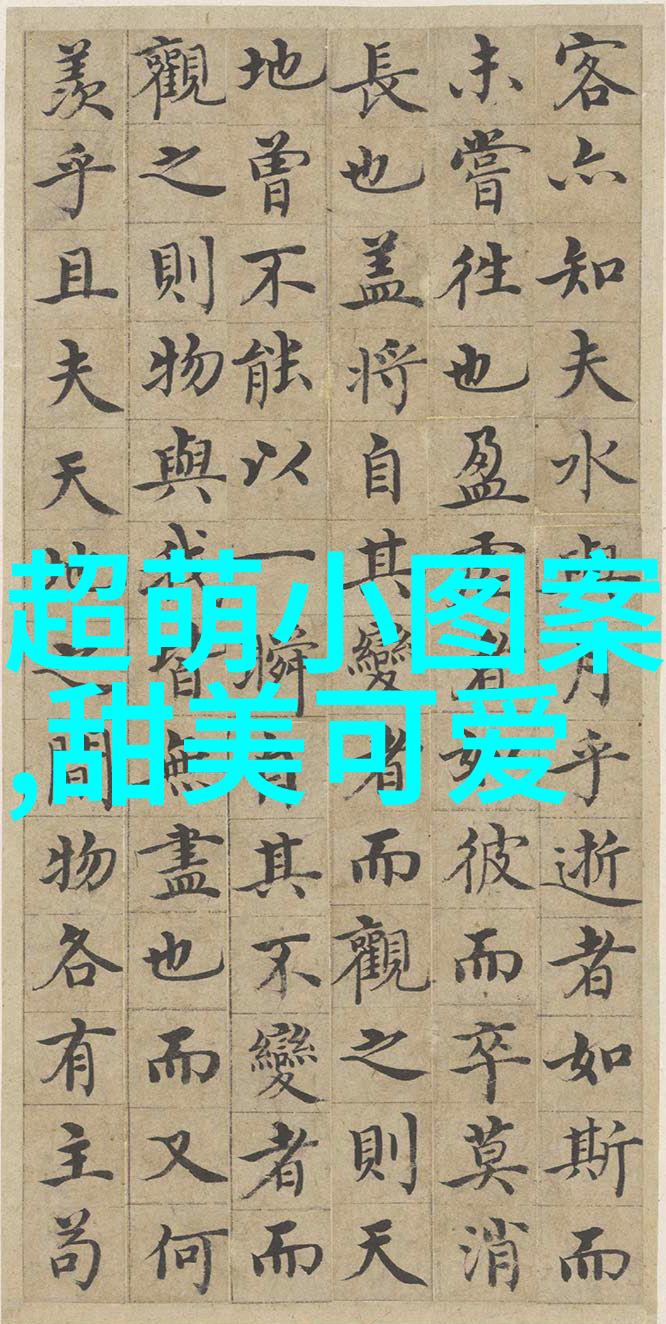 客亦知夫水與月乎逝者如斯而
未嘗往也盈虛者如彼而卒莫消
長也盖將自其變者而觀之則天
地曾不能以一瞬其不變者而
觀之則物與我皆無盡也而又何
羨乎且夫天地之間物各有主苟
超萌小图案
,甜美可爱